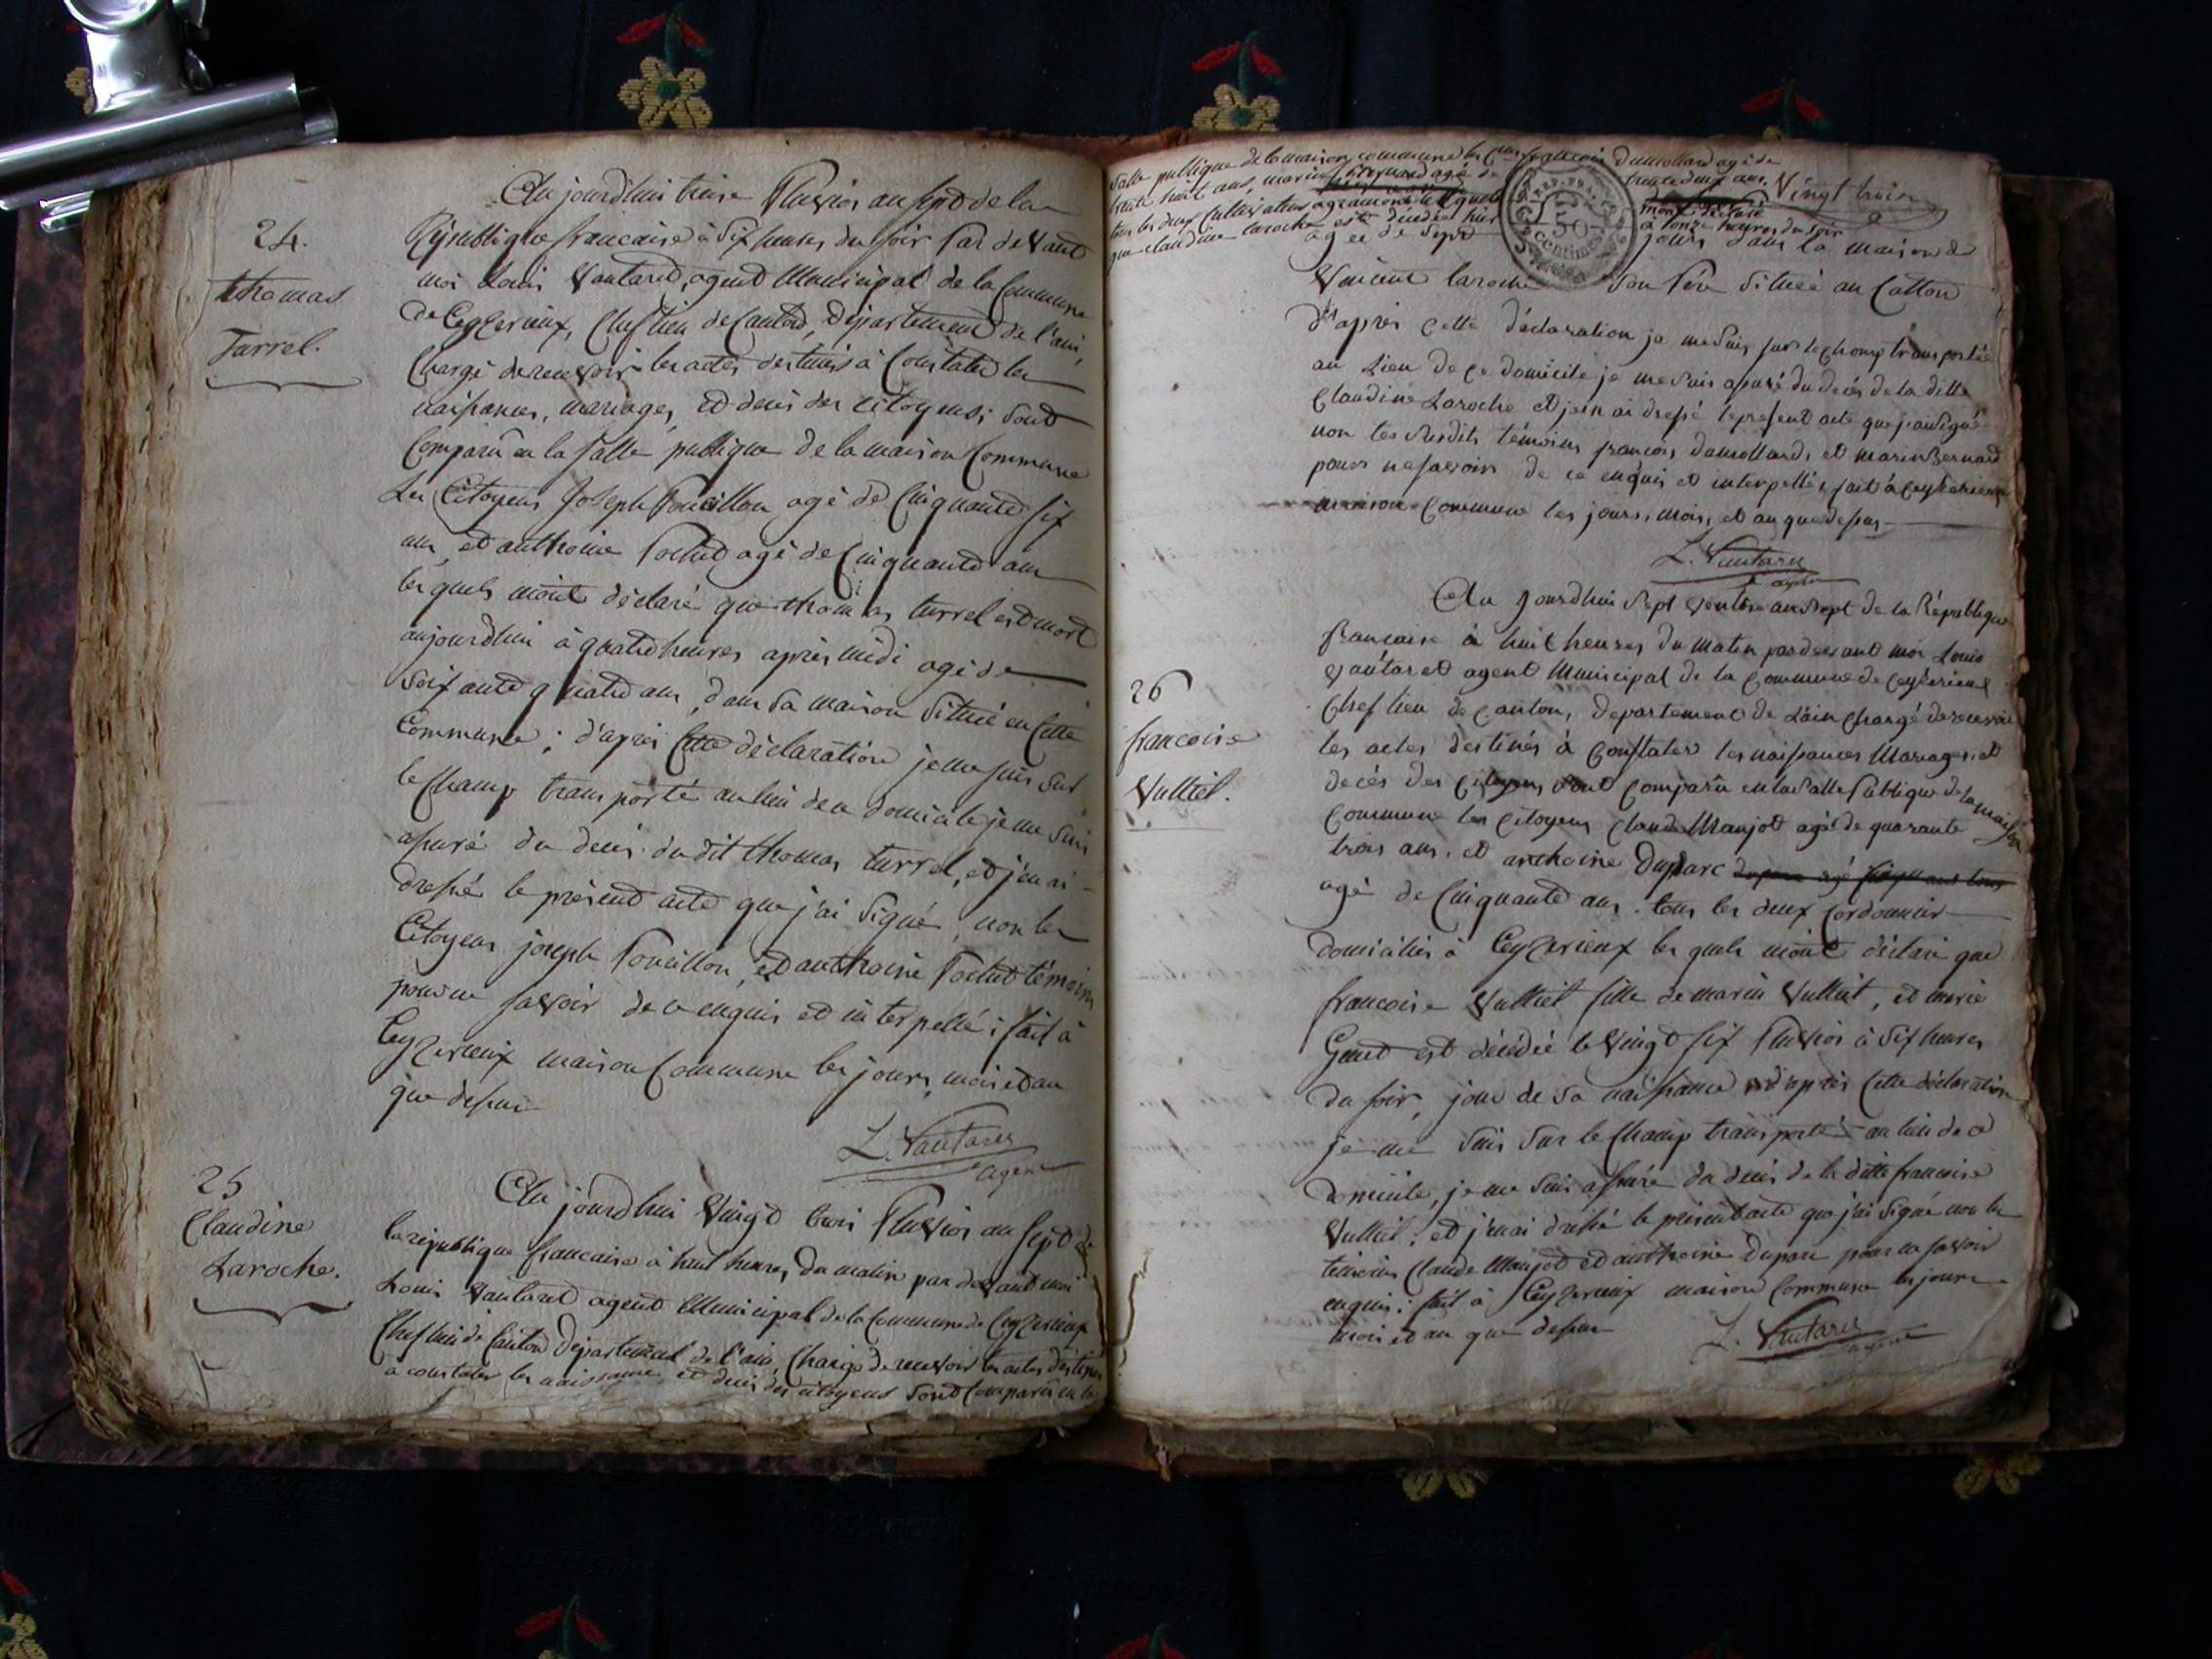 24.
thomas
Turrel.
Au jourdhui treise Pluviose an sept de la
République francaise à Six heures du soir Par devant
moi Louis Vautaret, agent Municipal de la Commune
de Ceyzerieux, Chef lieu de Canton, Département de l'ain,
Chargé de recevoir les actes destinés à Constater les
naissances, mariages, et decés des citoyens; sont
Comparu en la salle publique de la maison Commune
Les Citoyens Joseph agé de Cinquante six
ans, et anthoine agé de Cinquante ans
les quels mont déclaré que thomas turrel est mort
aujourdhui à quatre heures après midi agé de
soixante quatre ans, dans sa maison située en Cette
Commune; d'après Cette déclaration je me suis sur
le Champ transporté au lieu de ce domicile je me suis
assuré du decés dudit thomas turrel, et j'en ai
dressé le présent acte que j'ai Signé, non les
Citoyens joseph et anthoine témoins
pour ne savoir de ce enquis et interpellé; fait à
Ceyzerieux maison Commune les jours, mois et an
que dessus
L. Vautaret
agent
25
Claudine
Laroche.
Au jourdhui Vingt trois Pluviose an sept de
la république francaise à huit heures du matin par devant moi
Louis Vautaret agent Municipal de la Commune de Ceyzerieux
Chef lieu de Canton Département de l'ain, Chargé de recevoir les actes destinés
à constater les naissance et decés des citoyens sont Comparu en la
Salle publique de la maison commune les francois Dumollard agé de
trente huit ans, marin Bernard agé de trente deux ans, Vingt trois
tous les deux Cultivateurs les quels mont déclaré
que claudine laroche est décédée hier à onze heures du soir
REP. FRA.
50
centimes
agee de sept jours dans la maison de
Vincent laroche son Père Située au Catton
D'après cette déclaration je me suis sur le champ transportée
au Lieu de ce domicile je me suis assuré du decés de la ditte
Claudine Laroche et j'en ai dressé le present acte que j'ai Signé
non les susdits témoins francois dumollard, et marin Bernard
pour ne savoir de ce enquis et interpellés, fait à Ceyzerieux
maison Commune les jours, mois, et an que dessus
L. Vautaret
agent
26
francoise
Vulliet.
Au Jourdhui sept ventose an sept de la République
francaise à huit heures du matin par devant moi Louis
vautaret agent Municipal de la Commune de Ceyzerieux
Chef lieu de canton, departement de L'ain Chargé de recevoir
les actes destinés à Constater les naissances Mariages, et
decés des Citoyens sont Comparu en la salle Publique de la maison
Commune les Citoyens Claude Maujot agé de quarante
trois ans, et anthoine Duparc
agé de Cinquante ans, tous les deux Cordonnier
domicilies à Ceyzerieux les quels mont déclaré que
francoise Vulliet fille de marin Vulliet, et marie
est décédée le Vingt six Pluviose à six heures
du soir, jour de sa naissance d'après Cette déclaration
je me suis sur le Champ transporté au lieu de ce
domicile, je me suis assuré du decés de la ditte francoise
Vulliet, et j'en ai dressé le présent acte que j'ai Signé non les
temoins Claude Maujot et anthoine Duparc pour ne savoir
enquis; fait à Ceyzerieux maison Commune les jours
mois et an que dessus
L. Vautaret
agent